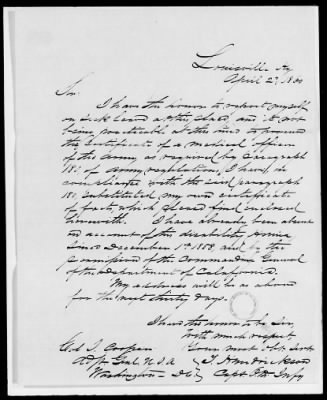 Louisville Ky
April 27, 1860
Sir.
I have the honor to report myself
on sick leave at this place, and it not
being practicable at this time to procure
the certificate of a medical officer
of the army, as required by paragraph
of Army regulations, I have, in
compliance with the said paragraph
substituted my own certificate
of fact, which please find enclosed
herewith. I have already been absent
on account of this disability
since December 1858 and by the
permission of the Commanding General
of the Department of California.
My address will be as above
for the next thirty days.
I have the honor to be Sir,
with much respect
Your most obt. Servt
Col. S. Cooper
Adjt. Genl. U.S.A
Washington - D.C.
Capt. Infy